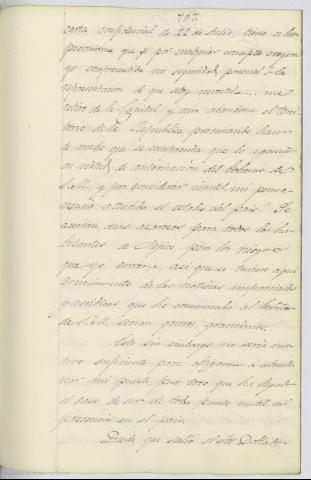 767.
carta confidencial de 22 de Julio, tiene a bien
prevenirme que si por cualquier concepto creyera
yo comprometida mi seguridad personal o la
representacion de que estoy investido... me
retire de la Capital, y aun abandone el terri-
torio de la Republica procurando hacer
de modo que se comprenda que lo ejecuto
en virtud de autorizacion del Gobierno de
S.M., y por considerar inutil mi perma-
nencia atendido el estado del pais." Se
acercan dias azarosos para todos los ha-
bitantes de Mejico, pero los riesgos
que yo correria, asi que se tuviese aqui
conocimiento de las noticias imparciales
y veridicas que he comunicado al Gobierno
de S.M. serian graves, gravisimos.
Esto sin embargo no seria mo-
tivo suficiente para obligarme a abando-
nar mi puesto, pero creo que ha llegado
el caso de ser de todo punto inutil mi
presencia en el pais.
Desde que salió el Sr. Doblado